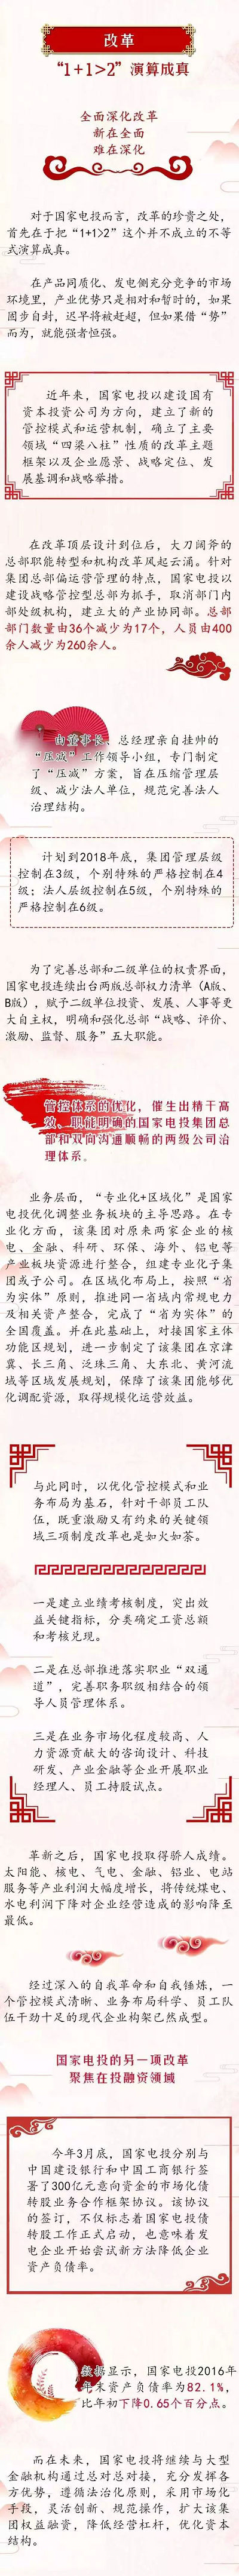 改革
“1+1>2”演算成真
全面深化改革
新在全面
难在深化
对于国家电投而言，改革的珍贵之处，
首先在于把“1+1>2”这个并不成立的不等
式演算成真。
在产品同质化、发电侧充分竞争的市场
环境里，产业优势只是相对和暂时的，如果
固步自封，迟早将被赶超，但如果借“势”
而为，就能强者恒强。
近年来，国家电投以建设国有
资本投资公司为方向，建立了新的
管控模式和运营机制，确立了主要
领域“四梁八柱”性质的改革主题
框架以及企业愿景、战略定位、发
展基调和战略举措。
在改革顶层设计到位后，大刀阔斧的
总部职能转型和机构改革风起云涌。针对
集团总部偏运营管理的特点，国家电投以
建设战略管控型总部为抓手，取消部门内
部处级机构，建立大的产业协同部。总部
部门数量由36个减少为17个，人员由400
余人减少为260余人。
由董事长、总经理亲自挂帅的
“压减”工作领导小组，专门制定
了“压减”方案，旨在压缩管理层
级、减少法人单位，规范完善法人
治理结构。
计划到2018年底，集团管理层级
控制在3级，个别特殊的严格控制在4
级；法人层级控制在5级，个别特殊的
严格控制在6级。
为了完善总部和二级单位的权责界面，
国家电投连续出台两版总部权力清单（A版、
B版），赋予二级单位投资、发展、人事等更
大自主权，明确和强化总部“战略、评价、
激励、监督、服务”五大职能。
管控体系的优化，催生出精干高
效、职能明确的国家电投集团总
部和双向沟通顺畅的两级公司治
理体系。
业务层面，“专业化+区域化”是国家
电投优化调整业务板块的主导思路。在专
业化方面，该集团对原来两家企业的核
电、金融、科研、环保、海外、铝电等
产业板块资源进行整合，组建专业化子集
团或子公司。在区域化布局上，按照“省
为实体”原则，推进同一省域内常规电力
及相关资产整合，完成了“省为实体”的
全国覆盖。并在此基础上，对接国家主体
功能区规划，进一步制定了该集团在京津
冀、长三角、泛珠三角、大东北、黄河流
域等区域发展规划，保障了该集团能够优
化调配资源，取得规模化运营效益。
与此同时，以优化管控模式和业
务布局为基石，针对干部员工队
伍，既重激励又有约束的关键领
域三项制度改革也是如火如荼。
一是建立业绩考核制度，突出效
益关键指标，分类确定工资总额
和考核兑现。
二是在总部推进落实职业“双通
道”，完善职务职级相结合的领
导人员管理体系。
三是在业务市场化程度较高、人
力资源贡献大的咨询设计、科技
研发、产业金融等企业开展职业
经理人、员工持股试点。
革新之后，国家电投取得骄人成绩。
太阳能、核电、气电、金融、铝业、电站
服务等产业利润大幅度增长，将传统煤电、
水电利润下降对企业经营造成的影响降至
最低。
经过深入的自我革命和自我锤炼，一
个管控模式清晰、业务布局科学、员工队
伍干劲十足的现代企业构架已然成型。
国家电投的另一项改革
聚焦在投融资领域
今年3月底，国家电投分别与
中国建设银行和中国工商银行签
署了300亿元意向资金的市场化债
转股业务合作框架协议。该协议
的签订，不仅标志着国家电投债
转股工作正式启动，也意味着发
电企业开始尝试新方法降低企业
资产负债率。
数据显示，国家电投2016年
年末资产负债率为82.1%，
比年初下降0.65个百分点。
而在未来，国家电投将继续与大型
金融机构通过总对总对接，充分发挥各
方优势，遵循法治化原则，采用市场化
手段，灵活创新、规范操作，扩大该集
团权益融资，降低经营杠杆，优化资本
结构。